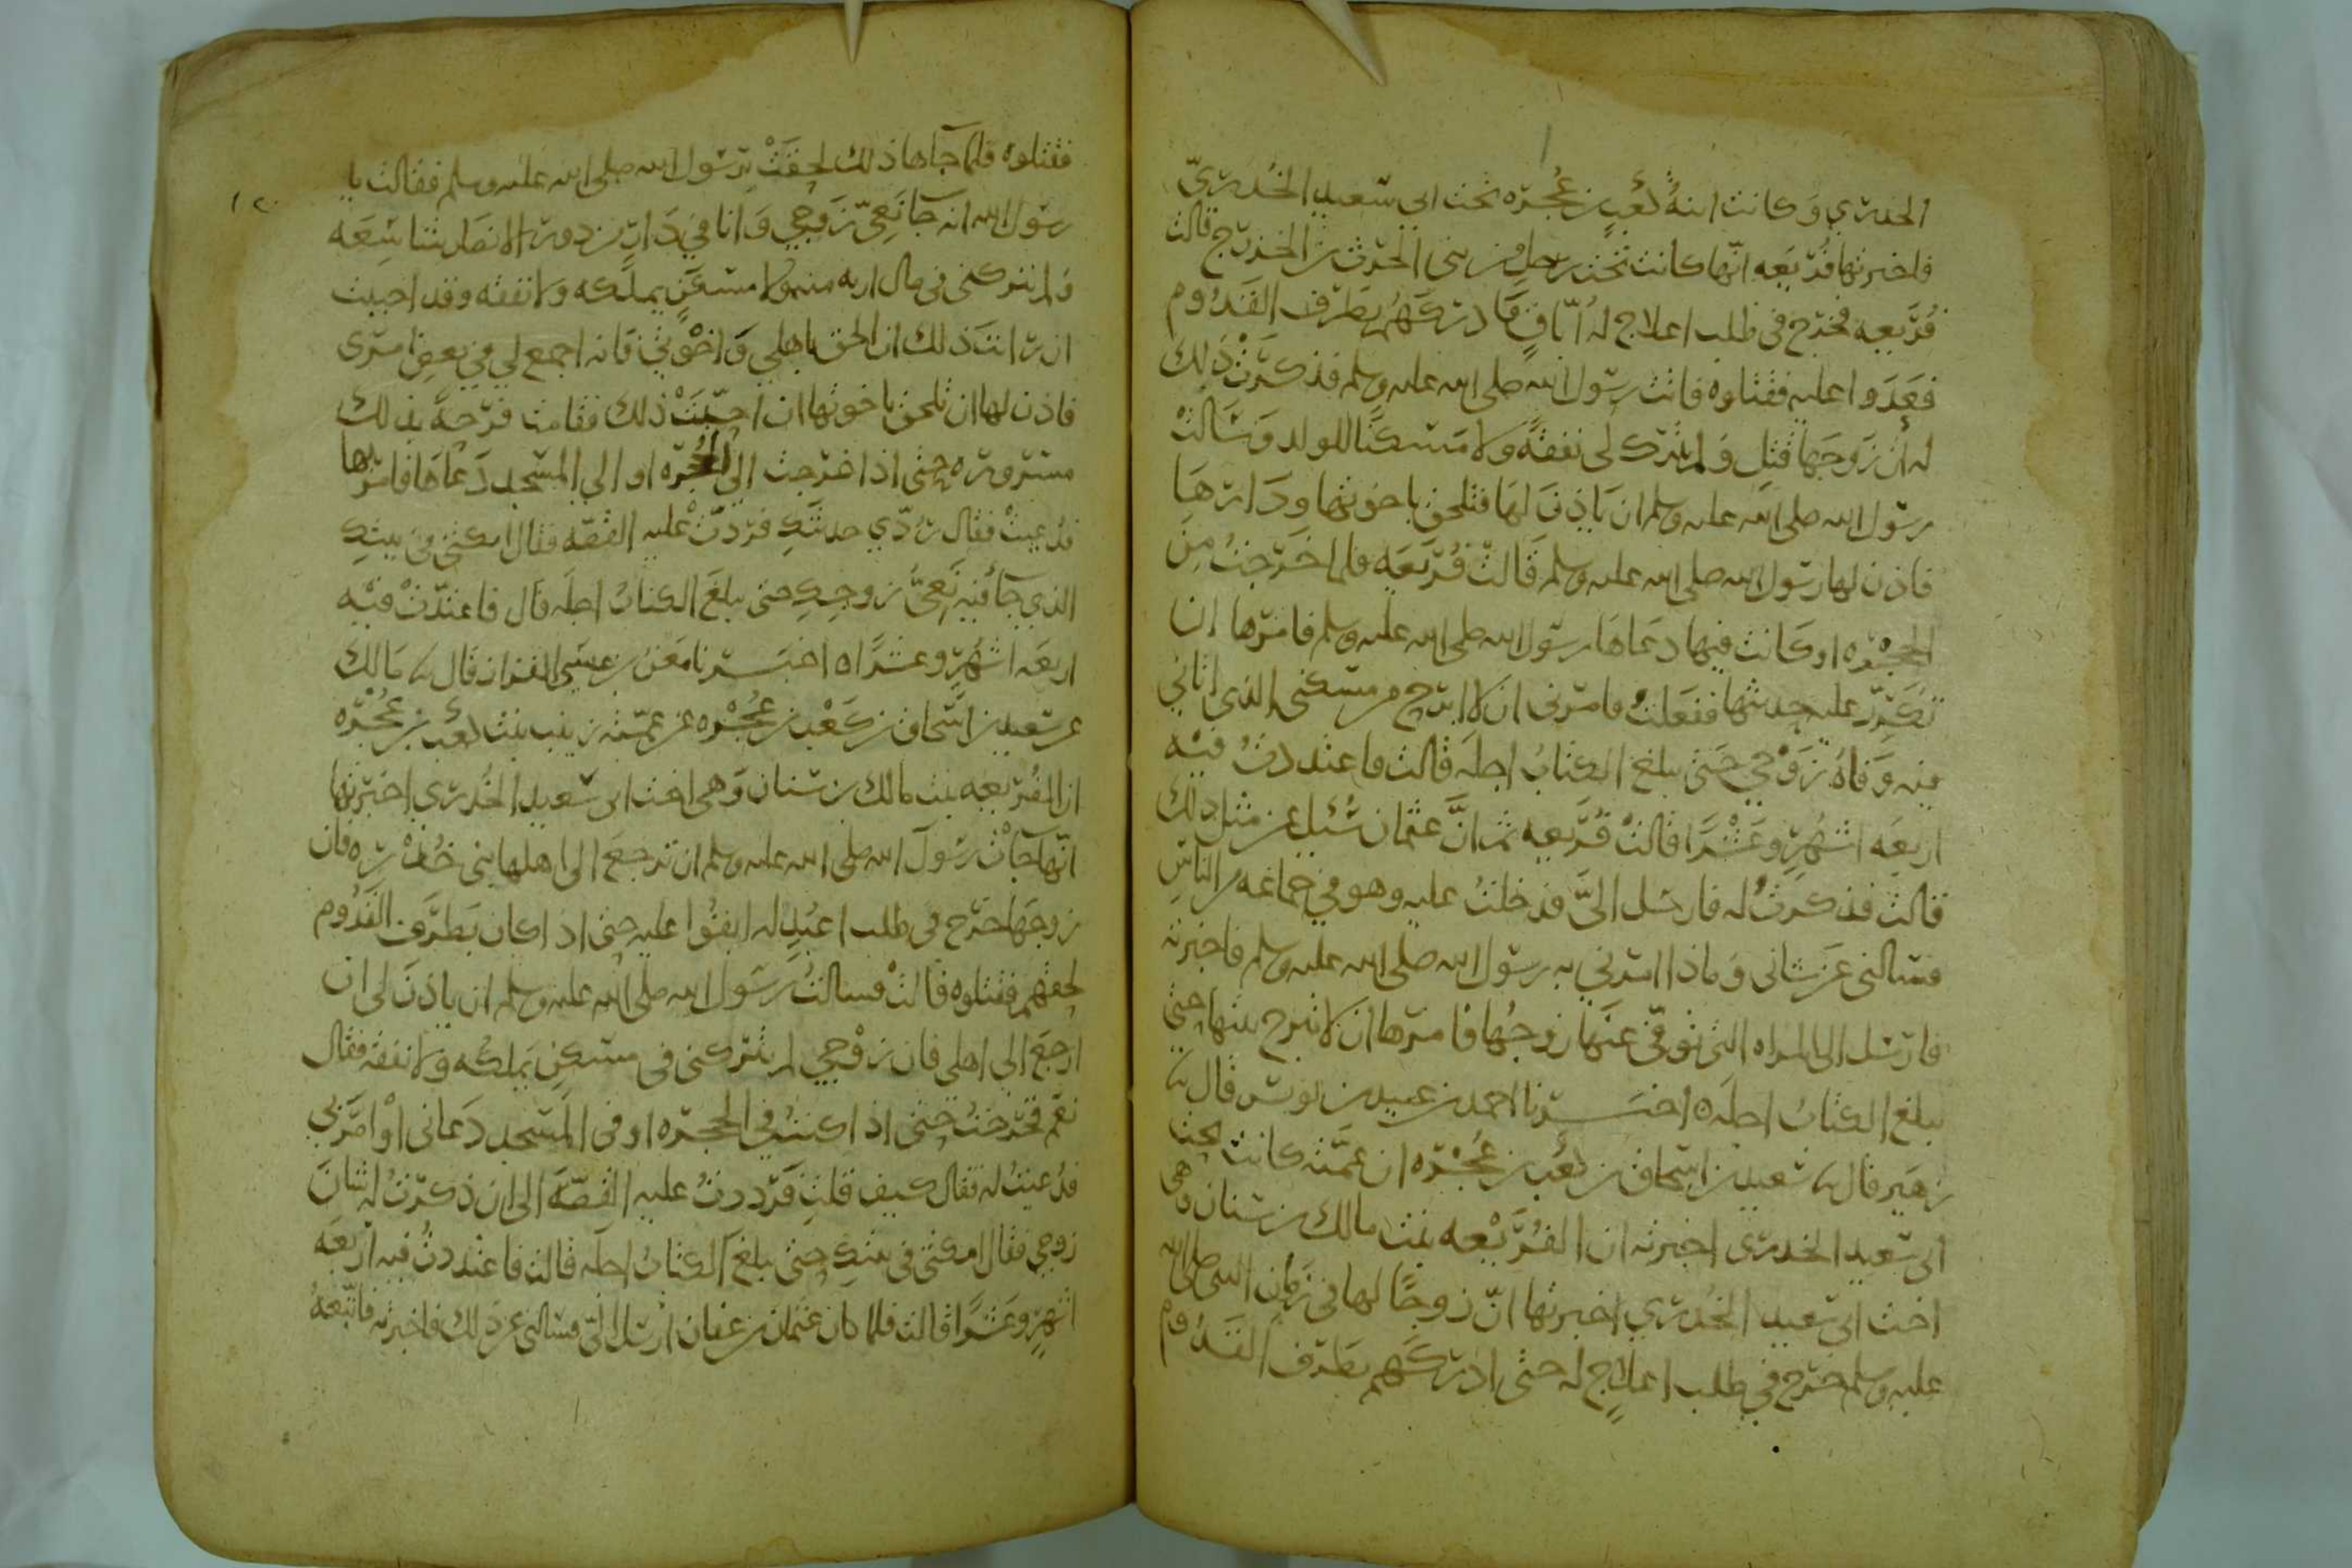 الخدري وكانت ابنة كعب بن عجره تحت ابي سعيد الخدري
فاخبرتها فريعه انها كانت تحت رجل من بني الحرث بن الخزرج قالت
فريعه فخرج في طلب اعلاج له اباق فادركهم بطرف القدوم
فعدوا عليه فقتلوه فاتت رسول الله صلى الله عليه وسلم فذكرت ذلك
له ان زوجها قتل ولم يترك لي نفقة ولا مسكنا للولد وسالت
رسول الله صلى الله عليه وسلم ان ياذن لها فتلحق باخوتها ودارها
فاذن لها رسول الله صلى الله عليه وسلم قالت فريعه فلما خرجت من
الحجره او كانت فيها دعاها رسول الله صلى الله عليه وسلم فامرها ان
تكرر عليه حديثها ففعلت فامرني ان لا ابرح من مسكني الذي اتاني
فيه وفاة زوجي حتى يبلغ الكتاب اجله قالت فاعتددت فيه
اربعه اشهر وعشرا قالت فريعه ثم ان عثمان سئل عن مثل ذلك
قالت فذكرت له فارسل الي فدخلت عليه وهو في جماعه من الناس
فسالني عن شاني وماذا امرني به رسول الله صلى الله عليه وسلم فاخبرته
فارسل الى المراه التي توفي عنها زوجها فامرها ان لا تبرح بيتها حتى
يبلغ الكتاب اجله ه اخبرنا احمد بن عبيد بن يونس قال ثنا
زهير قال ثنا سعيد بن اسحاق بن كعب بن عجره ان عمته كانت تحت
ابي سعيد الخدري اخبرته ان الفريعه بنت مالك بن سنان وهي
اخت ابي سعيد الخدري اخبرتها ان زوجا لها في زمان النبي صلى الله
عليه وسلم خرج في طلب اعلاج له حتى ادركهم بطرف القدوم
١٢٠
فقتلوه فلما جاها ذلك لحقت برسول الله صلى الله عليه وسلم فقالت يا
رسول الله انه جا نعي زوجي وانا في دار من دور الانصار شاسعه
ولم يتركني في مال ارثه منه ولا مسكن يملكه ولا نفقه وقد احببت
ان رايت ذلك ان الحق باهلي واخوتي فانه اجمع لي في بعض امري
فاذن لها ان تلحق باخوتها ان احببت ذلك فقامت فرحة بذلك
مسروره حتى اذا خرجت الى الحجره او الى المسجد دعاها فامر بها
فدعيت فقال ردي حديثك فردت عليه القصه فقال امكثي في بيتك
الذي جا فيه نعي زوجك حتى يبلغ الكتاب اجله قال فاعتدت فيه
اربعه اشهر وعشرا ه اخبرنا معن بن عيسى القزاز قال ثنا مالك
عن سعيد بن اسحاق بن كعب بن عجره عن عمته زينب بنت كعب بن عجره
ان الفريعه بنت مالك بن سنان وهي اخت ابي سعيد الخدري اخبرتها
انها جات رسول الله صلى الله عليه وسلم ان ترجع الى اهلها بني خدره فان
زوجها خرج في طلب اعبد له ابقوا عليه حتى اذا كان بطرف القدوم
لحقهم فقتلوه قالت فسالت رسول الله صلى الله عليه وسلم ان ياذن لي ان
ارجع الى اهلي فان زوجي لم يتركني في مسكن يملكه ولا نفقه فقال
نعم فخرجت حتى اذا كنت في الحجره او في المسجد دعاني او امر بي
فدعيت له فقال كيف قلت فرددت عليه القصه الى ان ذكرت له شان
زوجي فقال امكثي في بيتك حتى يبلغ الكتاب اجله قالت فاعتددت فيه اربعه
اشهر وعشرا قالت فلما كان عثمان بن عفان ارسل الي فسالني عن ذلك فاخبرته فاتبعه